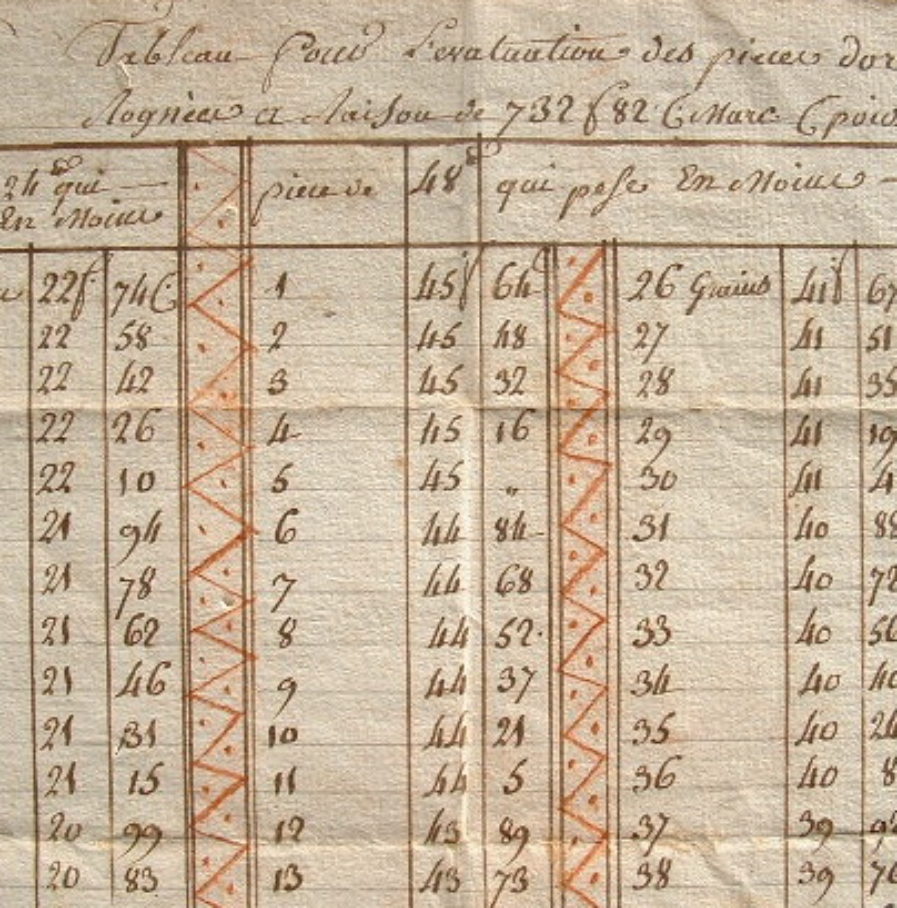 Tableau Pour L'evaluation des pieces dor
Rognées a Raison de 732 f 82 C Marc C poid
24 qui
En Moins
piece de 48 qui pese En Moins
22f 74C 1 45f 64C 26 Grains 41f 67
22 58 2 45 48 27 41 51
22 42 3 45 32 28 41 35
22 26 4 45 16 29 41 19
22 10 5 45 „ 30 41 4
21 94 6 44 84 31 40 88
21 78 7 44 68 32 40 72
21 62 8 44 52 33 40 56
21 46 9 44 37 34 40 40
21 31 10 44 21 35 40 24
21 15 11 44 5 36 40 8
20 99 12 43 89 37 39 92
20 83 13 43 73 38 39 76